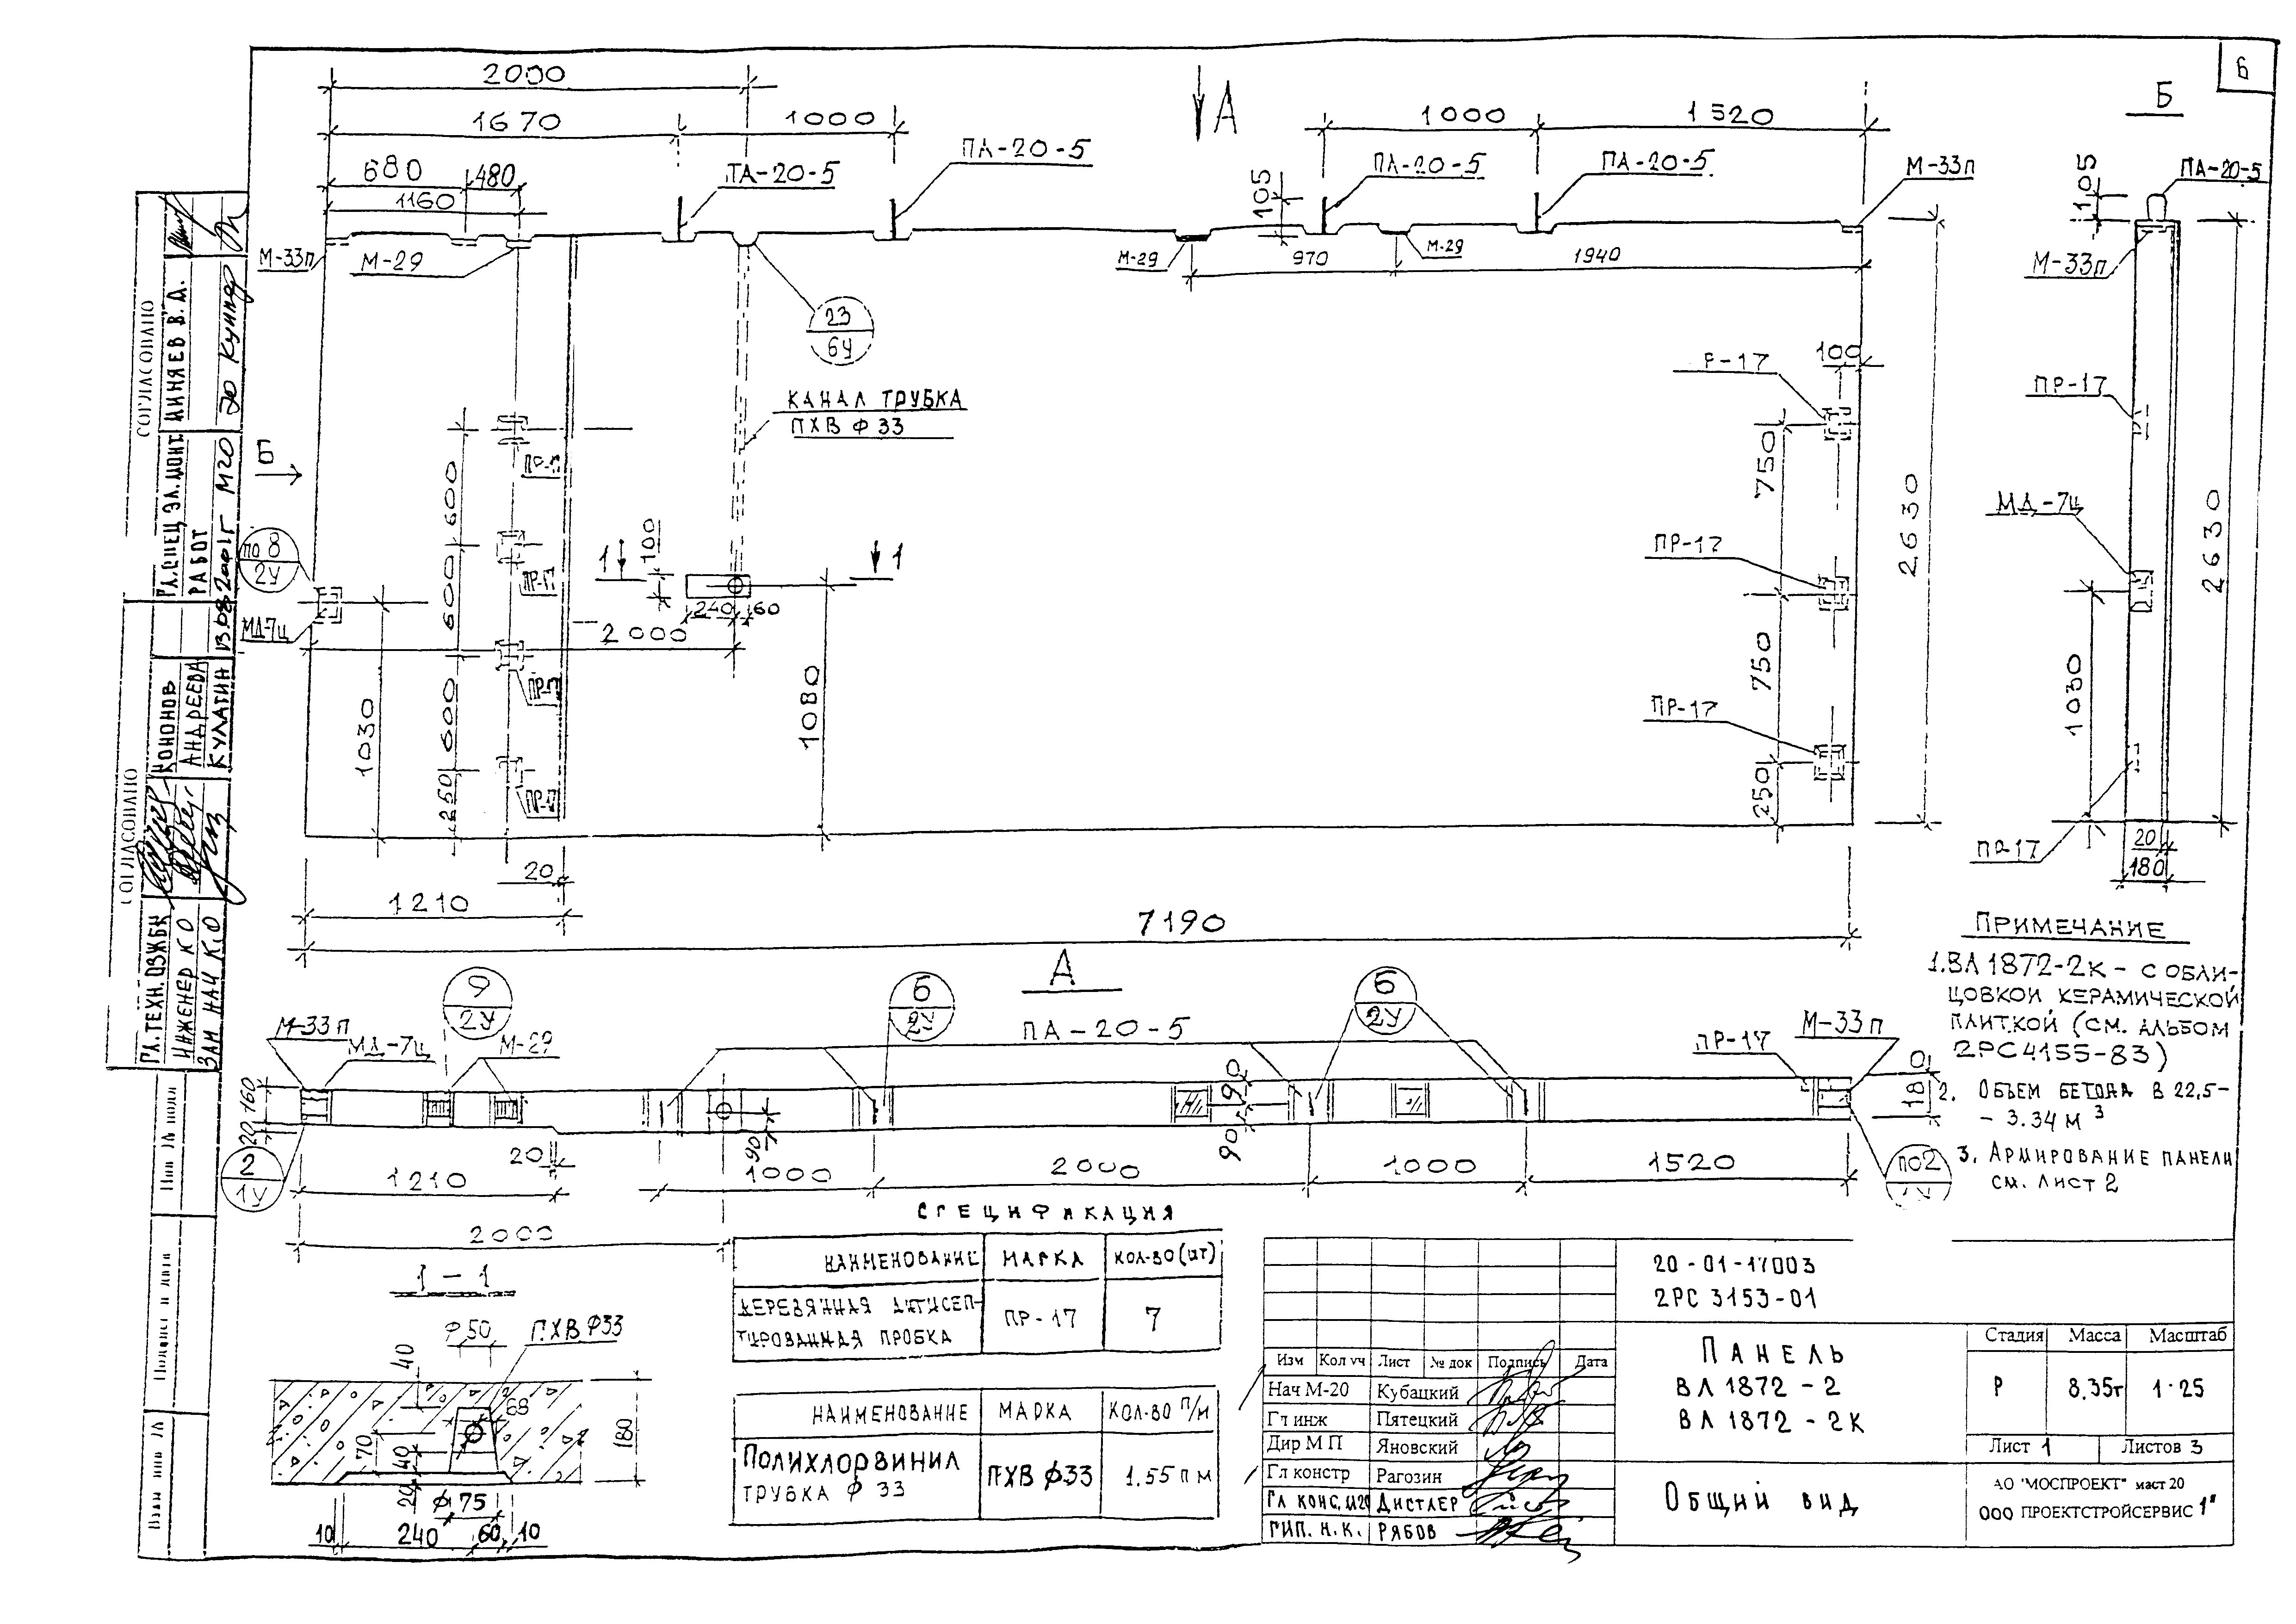 6
2000
А
Б
1670
1000
1000
1520
ПА-20-5
680
480
ТА-20-5
ПА-20-5
ПА-20-5
М-33п
105
ПА-20-5
105
1160
М-33п
М-29
М-29
970
М-29
1940
М-33п
23
6У
100
Р-17
ПР-17
КАНАЛ ТРУБКА
ПХВ Ф 33
Б
ПР-17
600
750
2630
МД-7ц
2630
по 8
2У
1
100
1
ПР-17
ПР-17
600
240
60
МД-7ц
2000
ПР-17
ПР-17
1030
600
1080
750
1030
250
ПР-17
250
ПР-17
20
20
180
1210
7190
А
ПРИМЕЧАНИЕ
1. ВЛ 1872-2К - С ОБЛИ-
ЦОВКОЙ КЕРАМИЧЕСКОЙ
ПЛИТКОЙ (СМ. АЛЬБОМ
2РС 4155-83)
2. ОБЪЕМ БЕТОНА В 22,5-
- 3.34 М³
3. АРМИРОВАНИЕ ПАНЕЛИ
СМ. ЛИСТ 2
9
2У
6
2У
6
2У
ПА-20-5
М-33п
МД-7ц
М-29
ПР-17
М-33п
160
20
90
90
180
90
2
1У
20
1210
1000
2000
1000
1520
по2
2000
СПЕЦИФИКАЦИЯ
НАИМЕНОВАНИЕ
МАРКА
КОЛ-ВО (ШТ)
ДЕРЕВЯННАЯ АНТИСЕП-
ТИРОВАННАЯ ПРОБКА
ПР-17
7
НАИМЕНОВАНИЕ
МАРКА
КОЛ-ВО П/М
ПОЛИХЛОРВИНИЛ
ТРУБКА Ф 33
ПХВ Ф33
1.55 П М
1-1
Ф50
ПХВ Ф33
40
68
70
40
180
20
Ф75
10
240
60
10
20-01-17003
2РС 3153-01
ПАНЕЛЬ
ВЛ 1872-2
ВЛ 1872-2К
Стадия
Масса
Масштаб
Р
8,35т
1:25
Лист 1
Листов 3
ОБЩИЙ ВИД
АО "МОСПРОЕКТ" маст 20
ООО ПРОЕКТСТРОЙСЕРВИС 1"
Изм
Кол уч
Лист
№ док
Подпись
Дата
Нач М-20
Кубацкий
Гл инж
Пятецкий
Дир М П
Яновский
Гл констр
Рагозин
ГЛ КОНС. М20
ДИСТЛЕР
ГИП. Н.К.
РЯБОВ
СОГЛАСОВАНО
ГЛ.СПЕЦ ЭЛ.МОНТ.
РАБОТ
МИНЯЕВ В.Д.
СОГЛАСОВАНО
ГЛ.ТЕХН. ОЗЖБК
КОНОНОВ
ИНЖЕНЕР КО
АНДРЕЕВА
ЗАМ НАЧ К.О
КУЛАГИН
13.08.2001г
М20